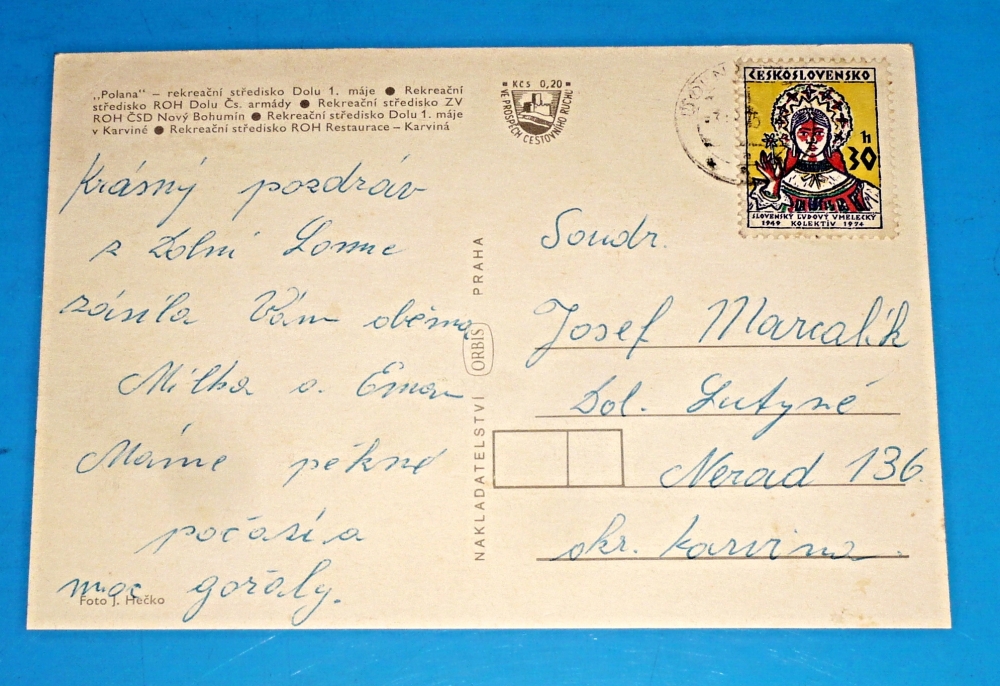 „Polana" – rekreační středisko Dolu 1. máje ● Rekreační
středisko ROH Dolu Čs. armády ● Rekreační středisko ZV
ROH ČSD Nový Bohumín ● Rekreační středisko Dolu 1. máje
v Karviné ● Rekreační středisko ROH Restaurace – Karviná
Krásný pozdrav
z Dolní Lomne
zásíla Vám oběma
Milka a. Ema
Máme pěkné
počasí a
moc gořaly.
Foto J. Hečko
NAKLADATELSTVÍ ORBIS PRAHA
Kčs 0,20
VE PROSPĚCH CESTOVNÍHO RUCHU
ČESKOSLOVENSKO
30 h
SLOVENSKÝ ĽUDOVÝ UMELECKÝ
1949 KOLEKTÍV 1974
Soudr.
Josef Marcalík
Dol. Lutyně
Nerad 136
okr. Karvina.